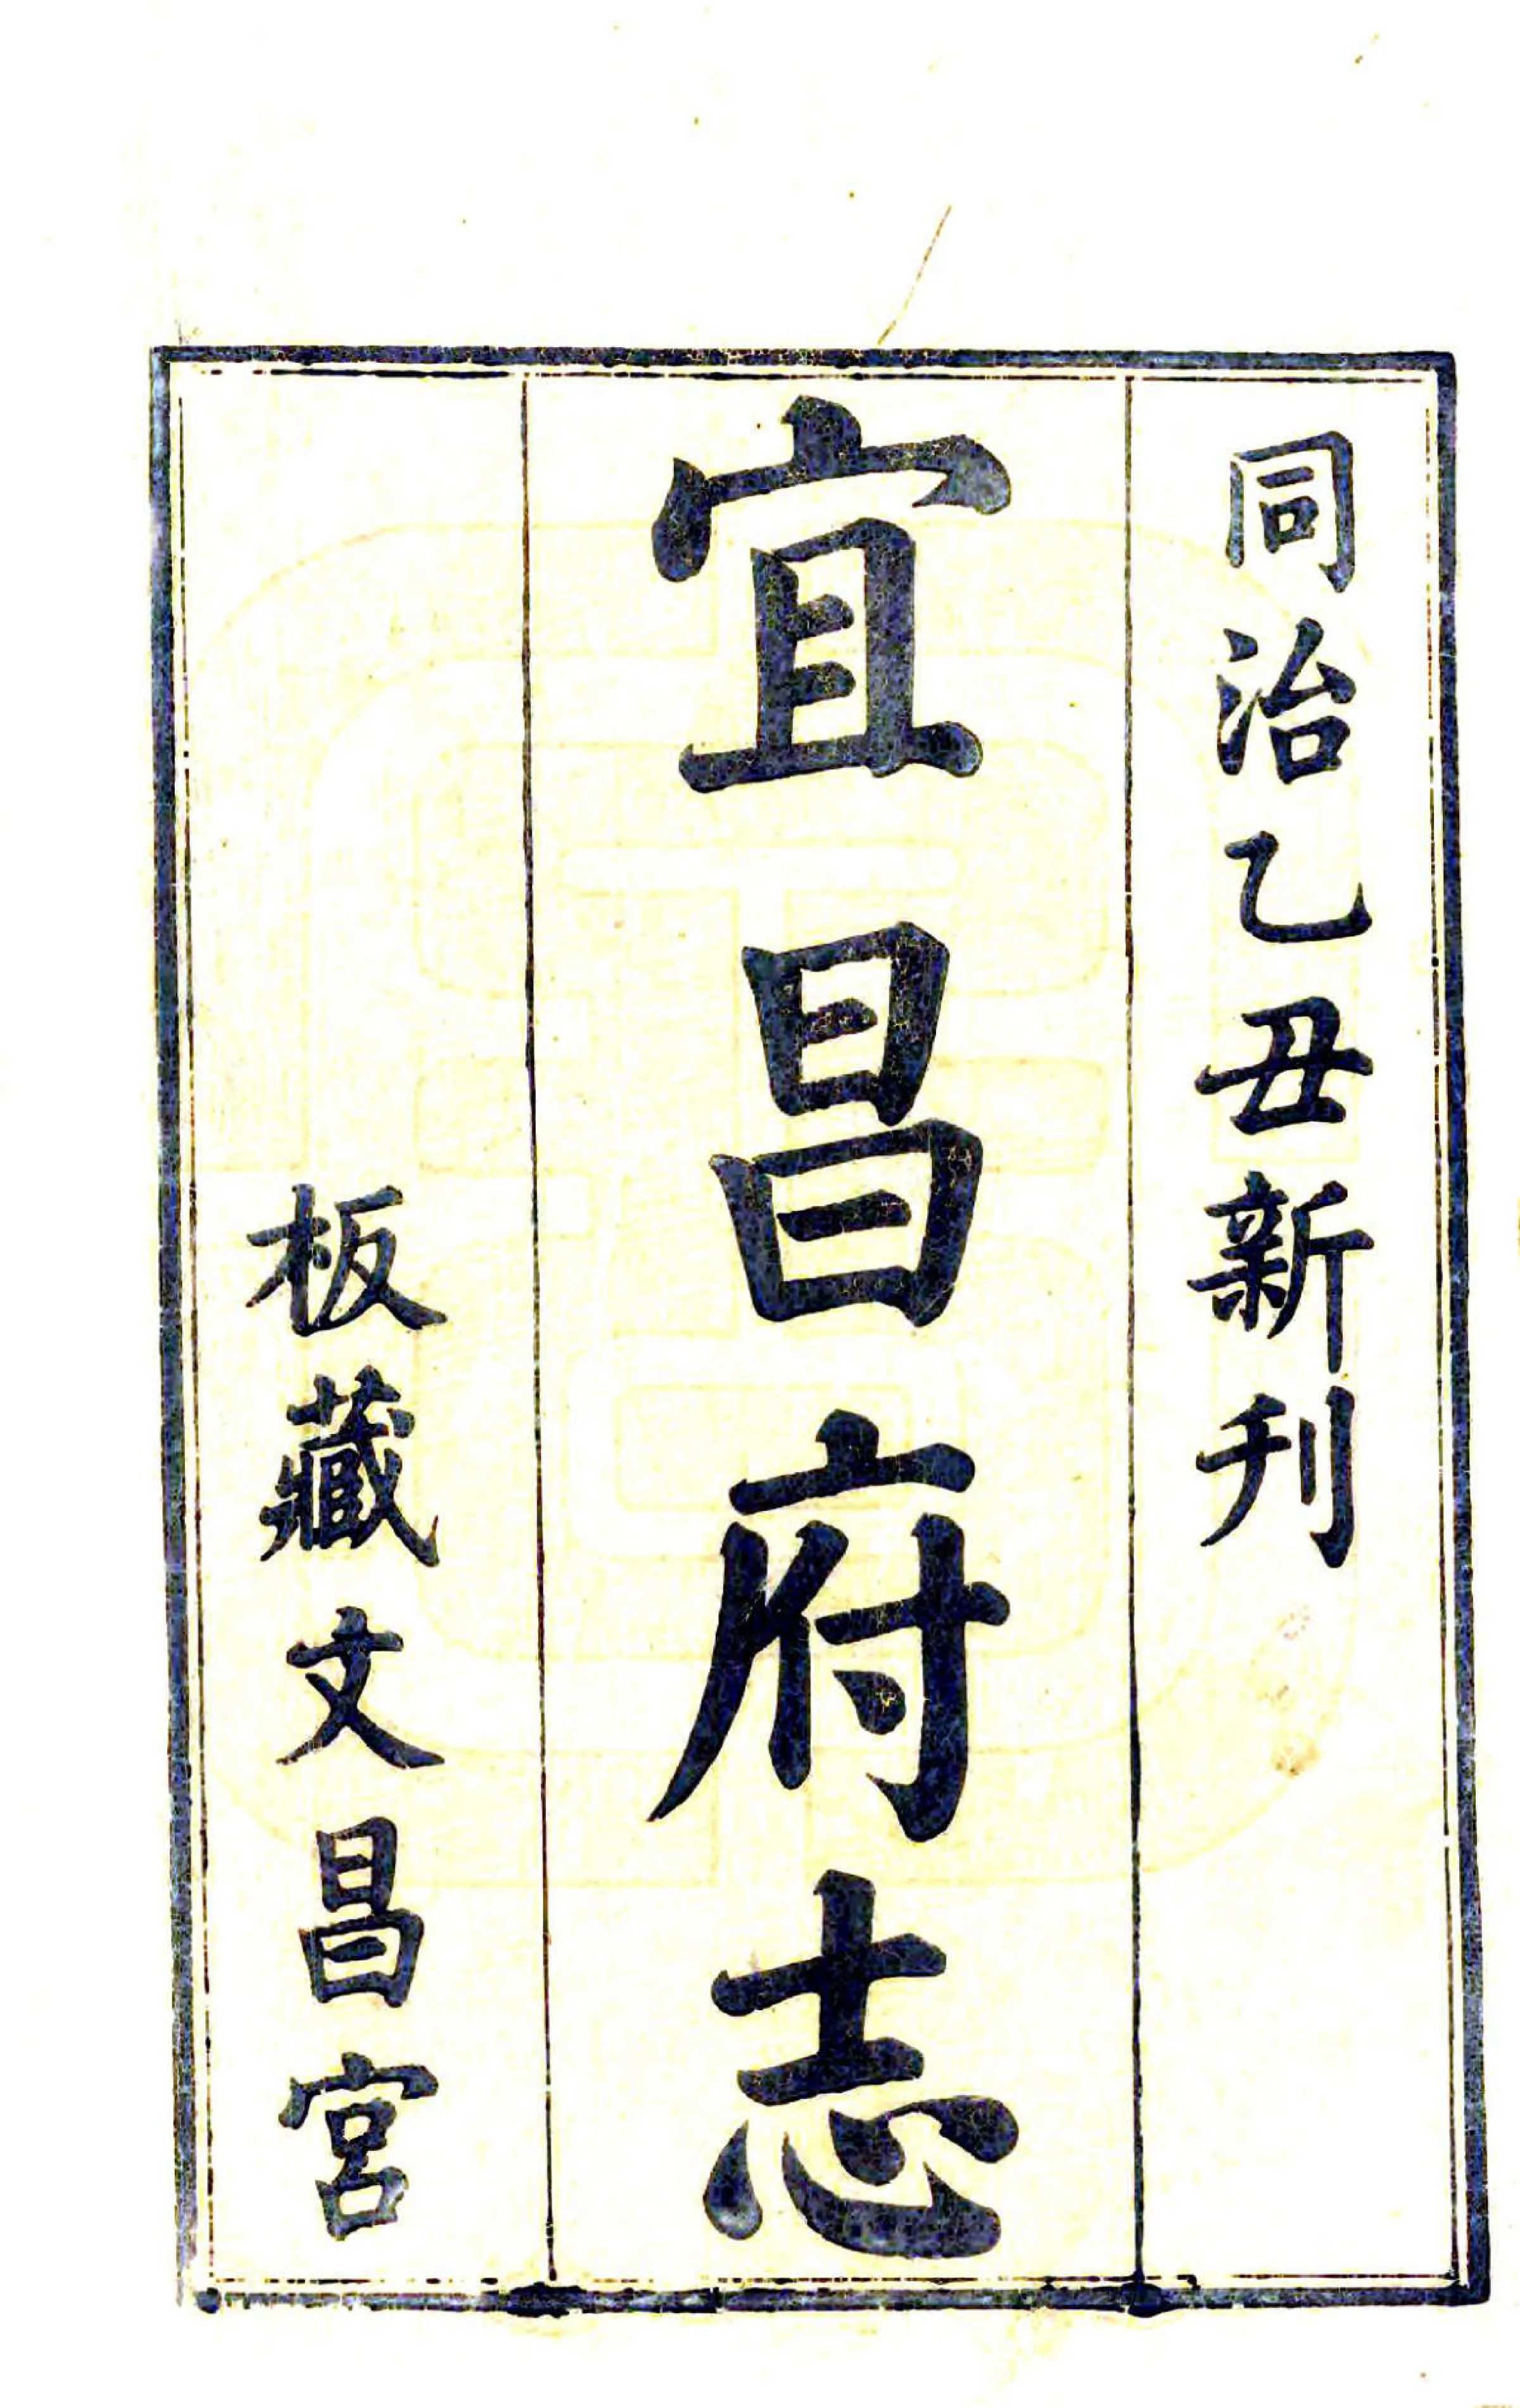 同治乙丑新刋
宜昌府志
板藏文昌宮